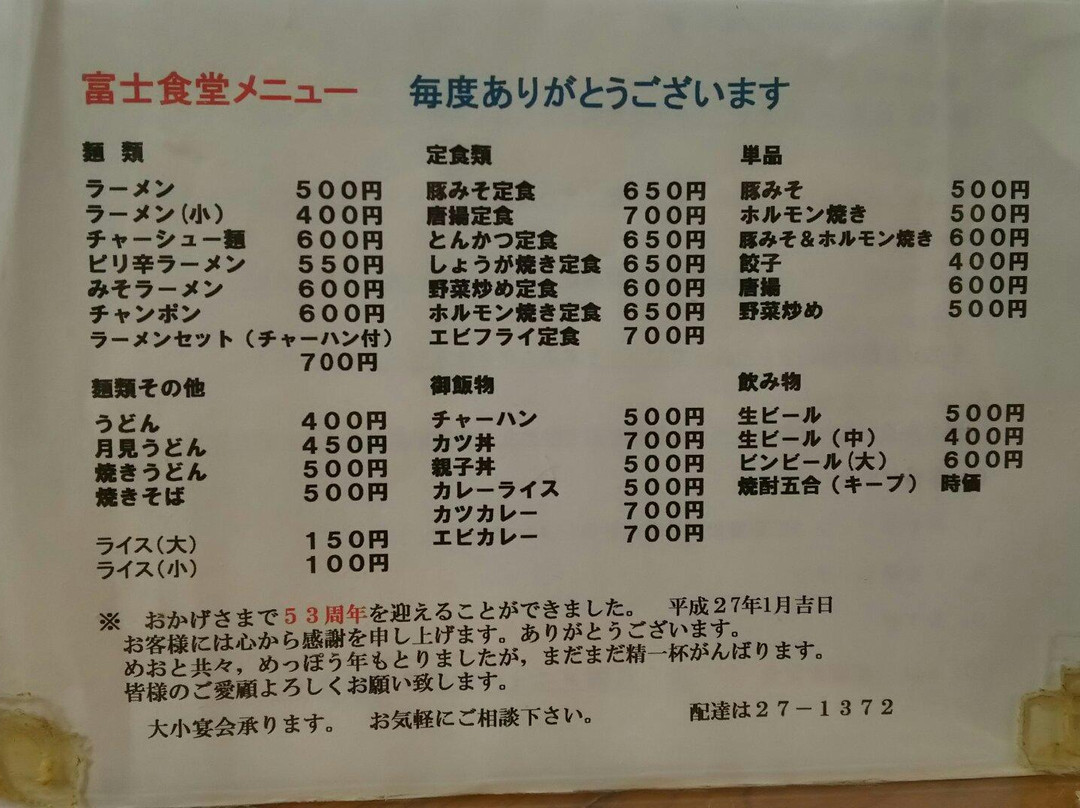 富士食堂メニュー　毎度ありがとうございます
麺 類
ラーメン　５００円
ラーメン(小)　４００円
チャーシュー麺　６００円
ピリ辛ラーメン　５５０円
みそラーメン　６００円
チャンポン　６００円
ラーメンセット（チャーハン付）
７００円
麺類その他
うどん　４００円
月見うどん　４５０円
焼きうどん　５００円
焼きそば　５００円
ライス（大）　１５０円
ライス（小）　１００円
定食類
豚みそ定食　６５０円
唐揚定食　７００円
とんかつ定食　６５０円
しょうが焼き定食　６５０円
野菜炒め定食　６００円
ホルモン焼き定食　６５０円
エビフライ定食　７００円
御飯物
チャーハン　５００円
カツ丼　７００円
親子丼　５００円
カレーライス　５００円
カツカレー　７００円
エビカレー　７００円
単品
豚みそ　５００円
ホルモン焼き　５００円
豚みそ＆ホルモン焼き　６００円
餃子　４００円
唐揚　６００円
野菜炒め　５００円
飲み物
生ビール　５００円
生ビール（中）　４００円
ビンビール(大)　６００円
焼酎五合（キープ）　時価
※　おかげさまで５３周年を迎えることができました。　平成２７年１月吉日
お客様には心から感謝を申し上げます。ありがとうございます。
めおと共々，めっぽう年もとりましたが，まだまだ精一杯がんばります。
皆様のご愛顧よろしくお願い致します。
大小宴会承ります。　お気軽にご相談下さい。　配達は２７－１３７２